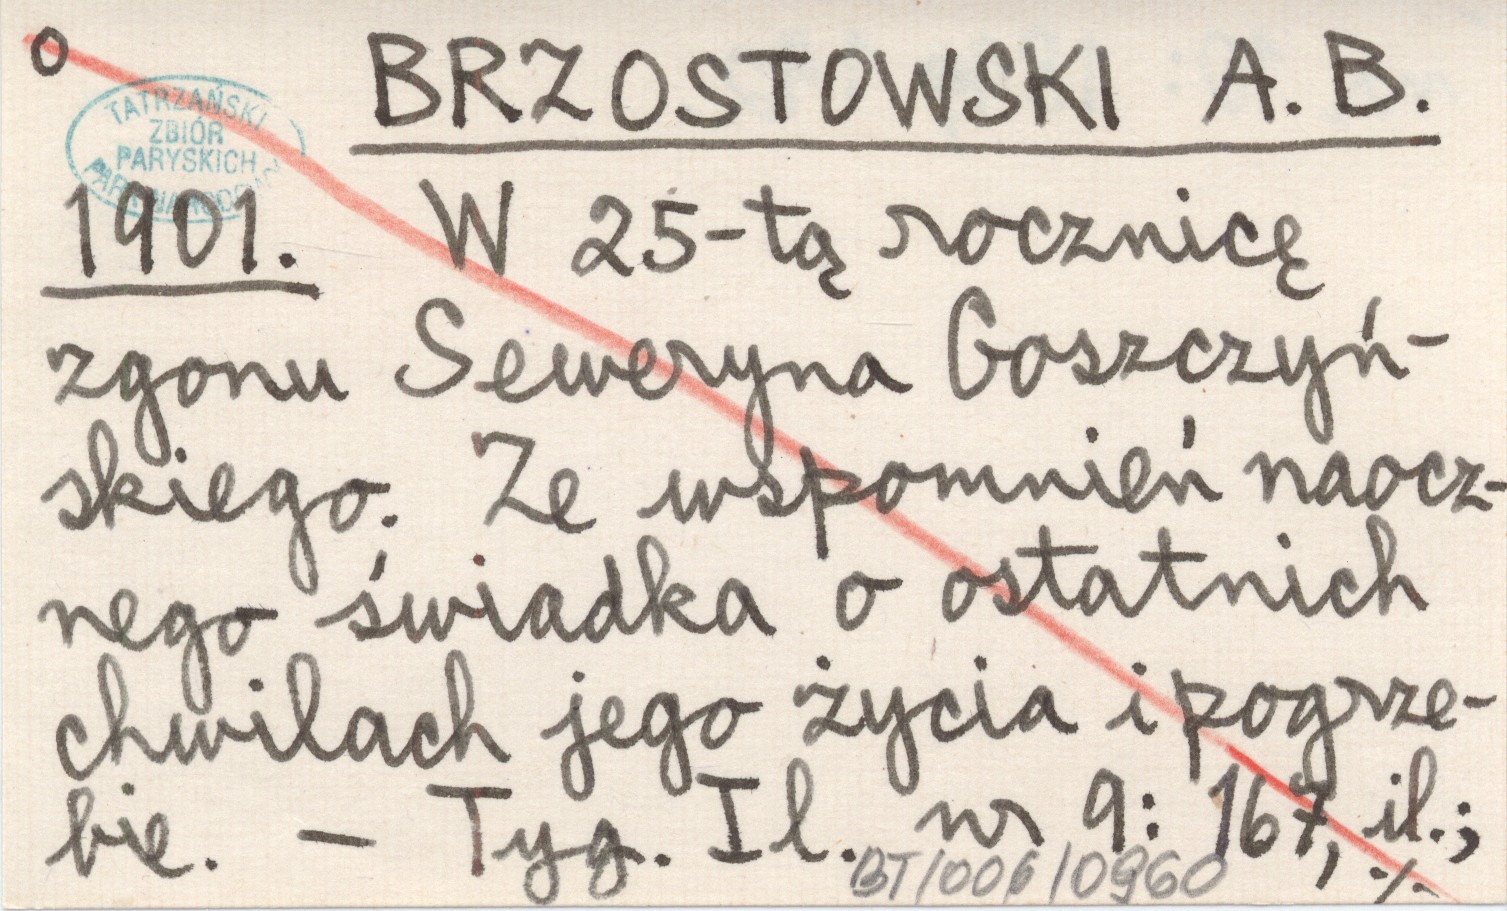 o BRZOSTOWSKI A. B.
TATRZAŃSKI
ZBIÓR
PARYSKICH
PARK NARODOWY
1901. W 25-tą rocznicę
zgonu Seweryna Goszczyń-
skiego. Ze wspomnień naocz-
nego świadka o ostatnich
chwilach jego życia i pogrze-
bie. — Tyg. Il. nr 9: 167, il.;
BT/006/0960 ./.